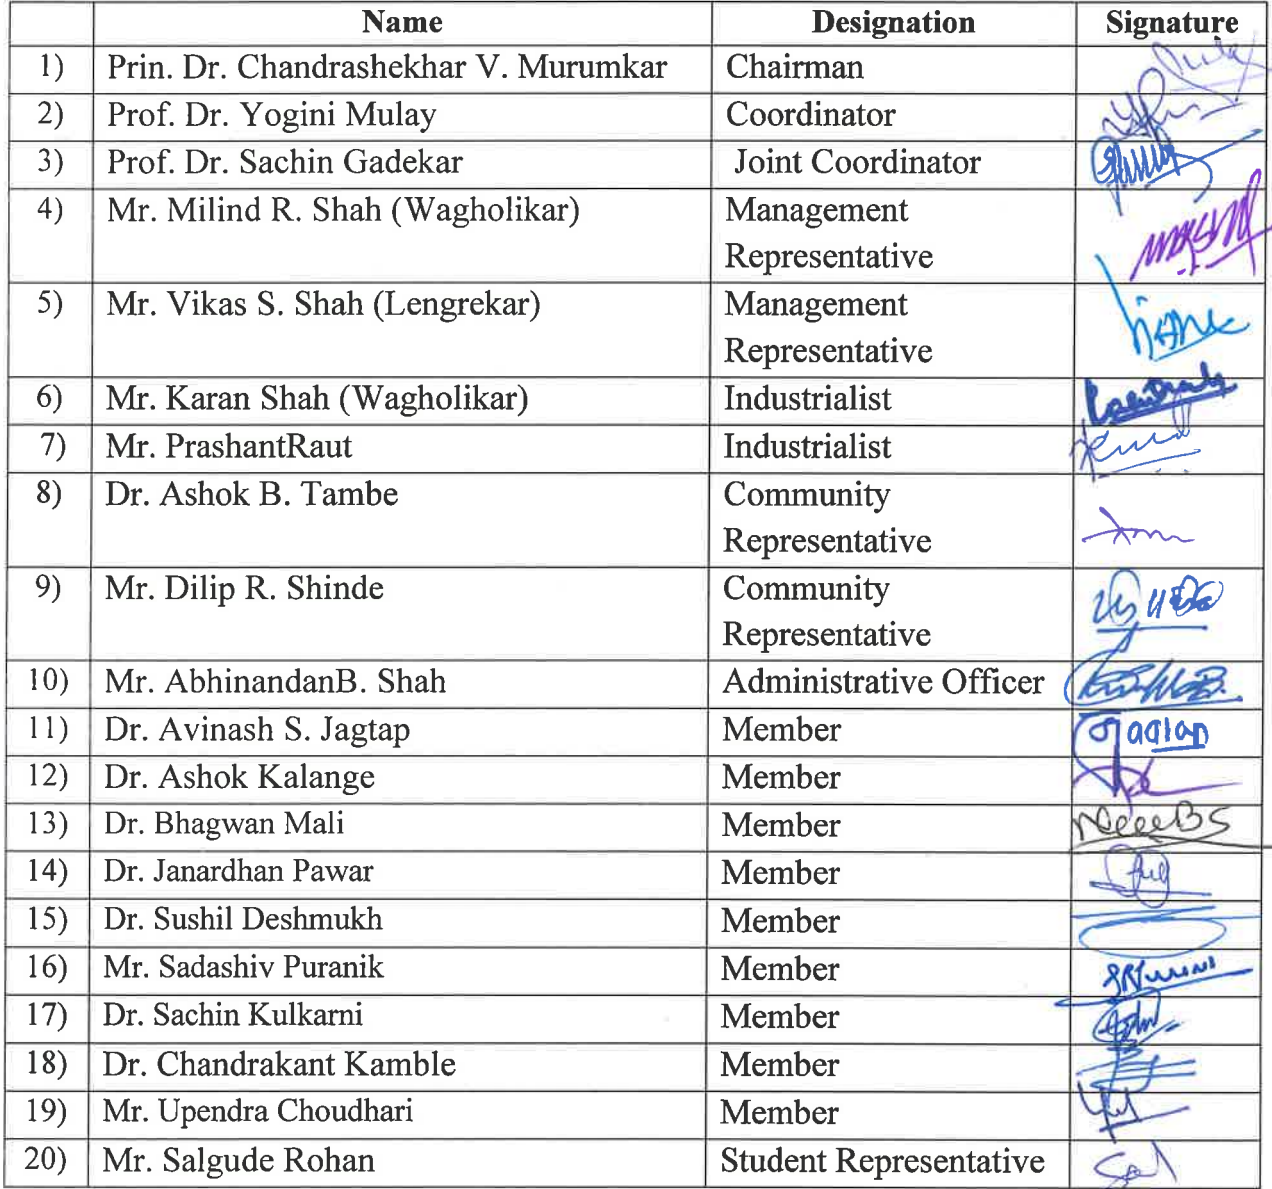 Name Designation Signature
1) Prin. Dr. Chandrashekhar V. Murumkar Chairman
2) Prof. Dr. Yogini Mulay Coordinator
3) Prof. Dr. Sachin Gadekar Joint Coordinator
4) Mr. Milind R. Shah (Wagholikar) Management
Representative
5) Mr. Vikas S. Shah (Lengrekar) Management
Representative
6) Mr. Karan Shah (Wagholikar) Industrialist
7) Mr. PrashantRaut Industrialist
8) Dr. Ashok B. Tambe Community
Representative
9) Mr. Dilip R. Shinde Community
Representative
10) Mr. AbhinandanB. Shah Administrative Officer
11) Dr. Avinash S. Jagtap Member
12) Dr. Ashok Kalange Member
13) Dr. Bhagwan Mali Member
14) Dr. Janardhan Pawar Member
15) Dr. Sushil Deshmukh Member
16) Mr. Sadashiv Puranik Member
17) Dr. Sachin Kulkarni Member
18) Dr. Chandrakant Kamble Member
19) Mr. Upendra Choudhari Member
20) Mr. Salgude Rohan Student Representative